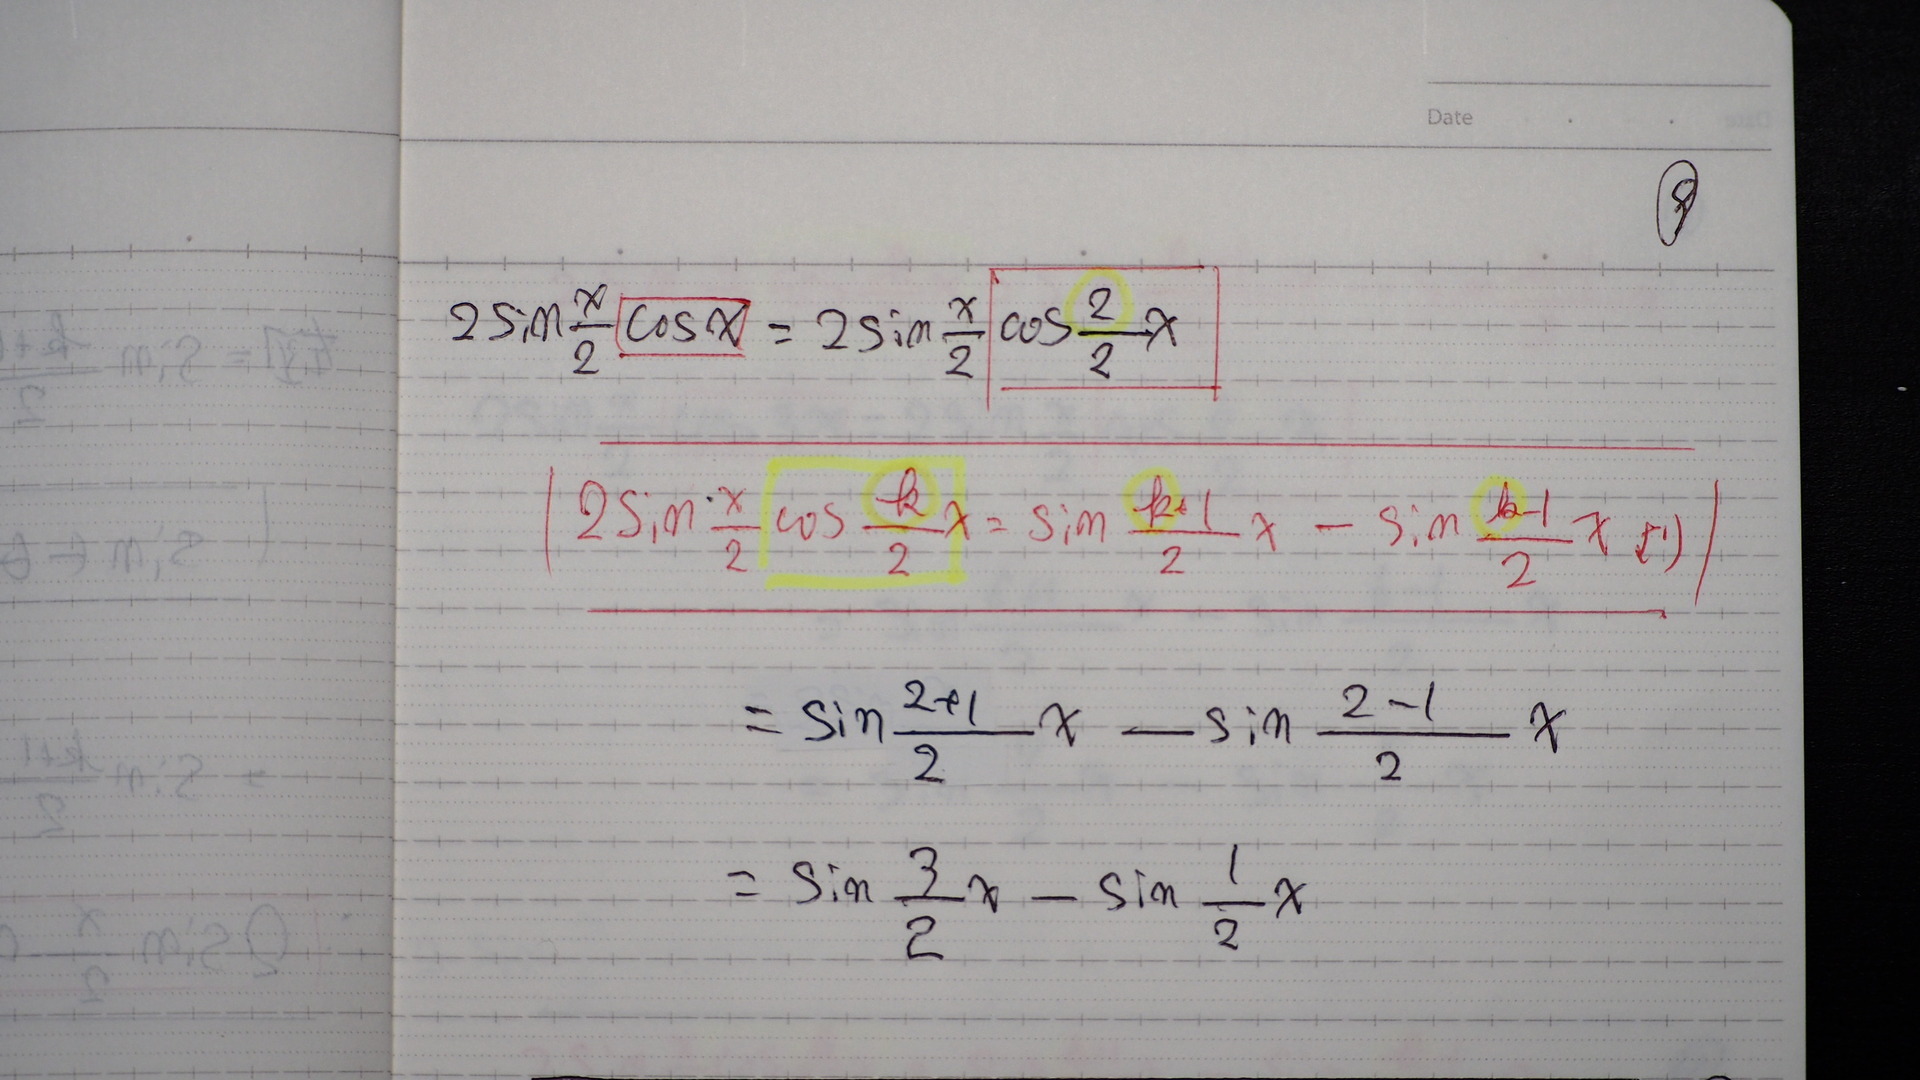 Date
9
2 sin x/2 cos x = 2 sin x/2 cos 2/2 x
2 sin x/2 cos k/2 x = sin k+1/2 x - sin k-1/2 x
= sin 2+1/2 x - sin 2-1/2 x
= sin 3/2 x - sin 1/2 x